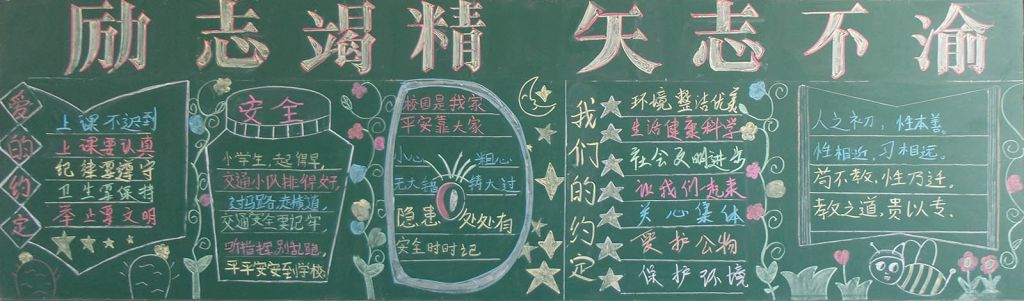 励志竭精 矢志不渝
爱的约定
上课不迟到
上课要认真
纪律要遵守
卫生要保持
举止要文明
安全
小学生,起得早,
交通小队排得好,
过马路,走横道,
交通安全要记牢,
听指挥,别乱跑,
平平安安到学校
校园是我家
平安靠大家
小心 粗心
无大错 铸大过
隐患 处处有
安全时时记
我们的约定
环境整洁优美
生活健康科学
社会文明进步
让我们走来
关心集体
爱护公物
保护环境
人之初,性本善。
性相近,习相远。
苟不教,性乃迁。
教之道,贵以专。